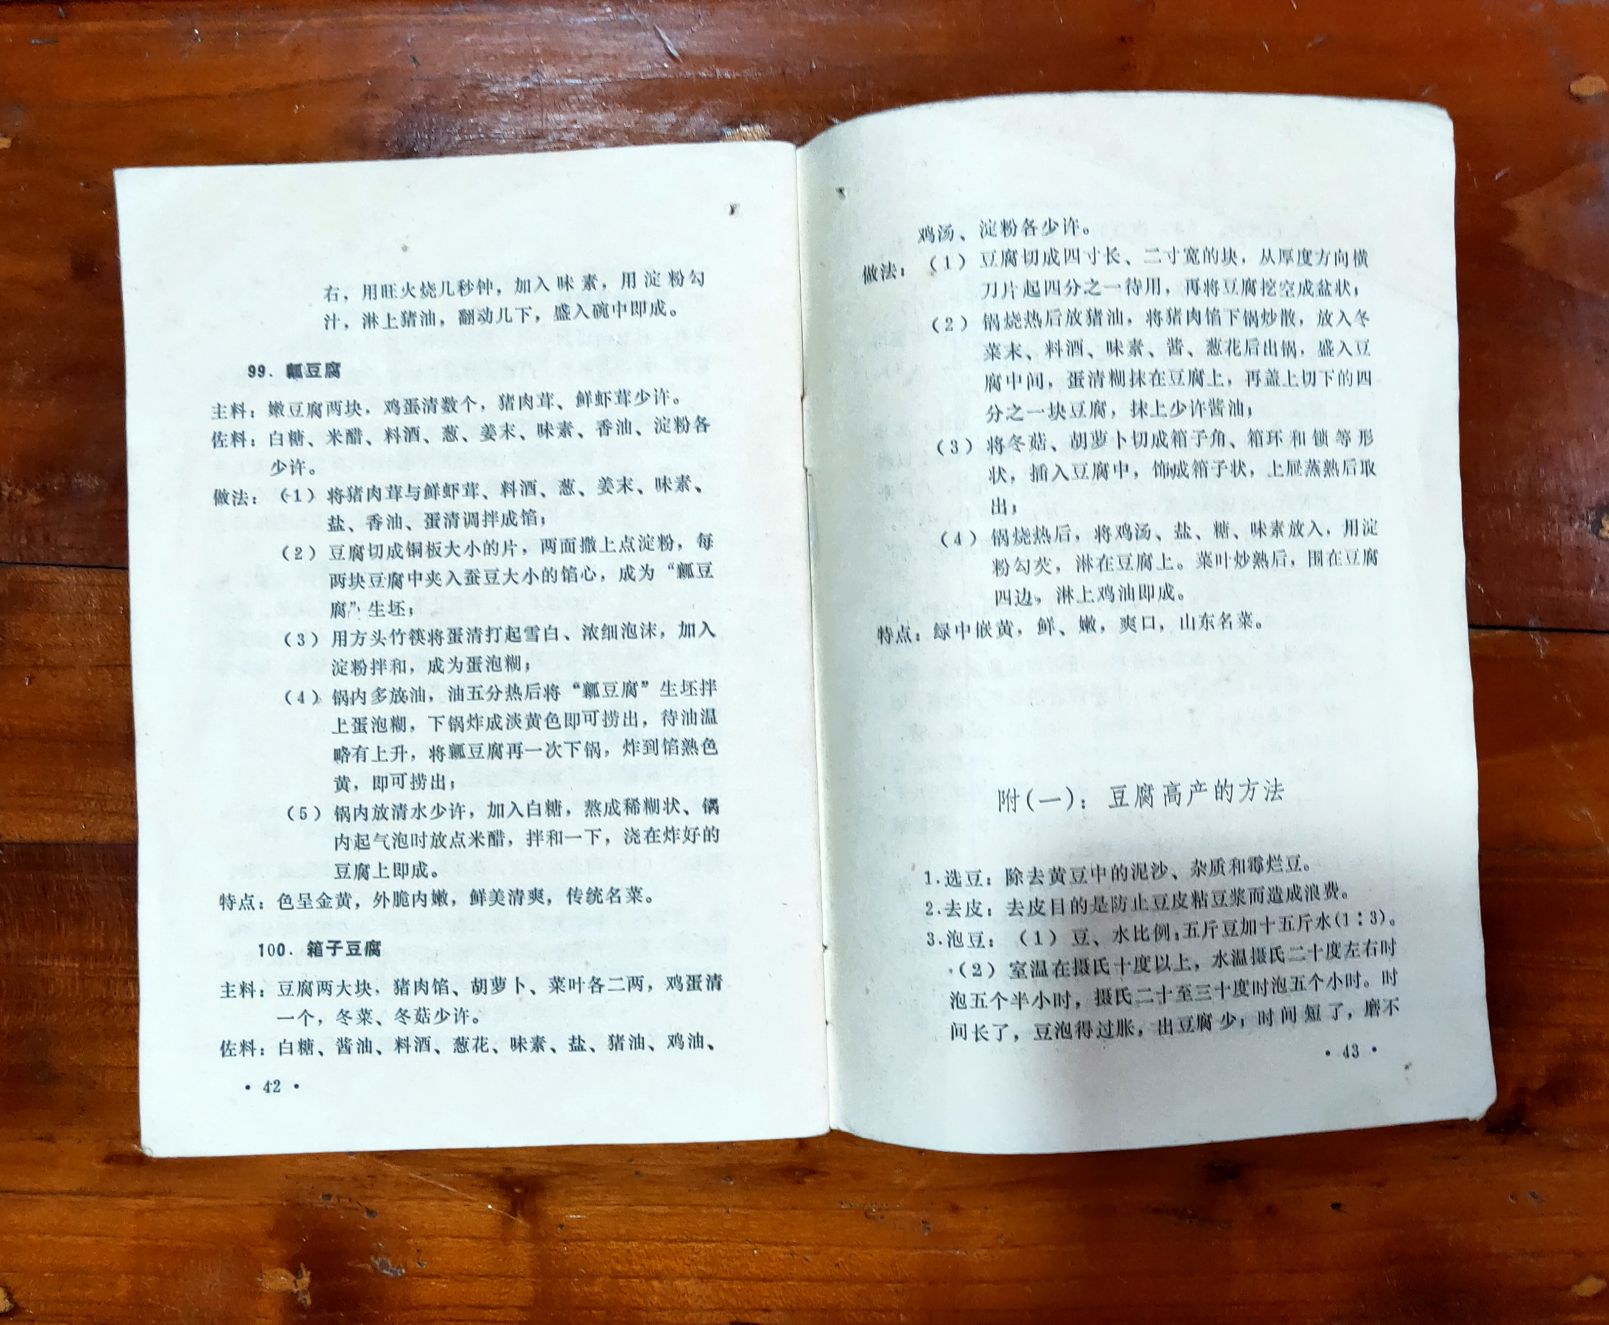 右，用旺火烧几秒钟，加入味素，用淀粉勾
汁，淋上猪油，翻动几下，盛入碗中即成。
99．瓤豆腐
主料：嫩豆腐两块，鸡蛋清数个，猪肉茸、鲜虾茸少许。
佐料：白糖、米醋、料酒、葱、姜末、味素、香油、淀粉各
少许。
做法：（1）将猪肉茸与鲜虾茸、料酒、葱、姜末、味素、
盐、香油、蛋清调拌成馅；
（2）豆腐切成铜板大小的片，两面撒上点淀粉，每
两块豆腐中夹入蚕豆大小的馅心，成为“瓤豆
腐”生坯；
（3）用方头竹筷将蛋清打起雪白、浓细泡沫，加入
淀粉拌和，成为蛋泡糊；
（4）锅内多放油，油五分热后将“瓤豆腐”生坯拌
上蛋泡糊，下锅炸成淡黄色即可捞出，待油温
略有上升，将瓤豆腐再一次下锅，炸到馅熟色
黄，即可捞出；
（5）锅内放清水少许，加入白糖，熬成稀糊状、锅
内起气泡时放点米醋，拌和一下，浇在炸好的
豆腐上即成。
特点：色呈金黄，外脆内嫩，鲜美清爽，传统名菜。
100．箱子豆腐
主料：豆腐两大块，猪肉馅、胡萝卜、菜叶各二两，鸡蛋清
一个，冬菜、冬菇少许。
佐料：白糖、酱油、料酒、葱花、味素、盐、猪油、鸡油、
• 42 •
鸡汤、淀粉各少许。
做法：（1）豆腐切成四寸长、二寸宽的块，从厚度方向横
刀片起四分之一待用，再将豆腐挖空成盆状；
（2）锅烧热后放猪油，将猪肉馅下锅炒散，放入冬
菜末、料酒、味素、酱、葱花后出锅，盛入豆
腐中间，蛋清糊抹在豆腐上，再盖上切下的四
分之一块豆腐，抹上少许酱油；
（3）将冬菇、胡萝卜切成箱子角、箱环和锁等形
状，插入豆腐中，饰成箱子状，上屉蒸熟后取
出；
（4）锅烧热后，将鸡汤、盐、糖、味素放入，用淀
粉勾芡，淋在豆腐上。菜叶炒熟后，围在豆腐
四边，淋上鸡油即成。
特点：绿中嵌黄，鲜、嫩，爽口，山东名菜。
附（一）：豆腐高产的方法
1.选豆：除去黄豆中的泥沙、杂质和霉烂豆。
2.去皮：去皮目的是防止豆皮粘豆浆而造成浪费。
3.泡豆：（1）豆、水比例：五斤豆加十五斤水(1：3)。
（2）室温在摄氏十度以上，水温摄氏二十度左右时
泡五个半小时，摄氏二十至三十度时泡五个小时。时
间长了，豆泡得过胀，出豆腐少；时间短了，磨不
• 43 •